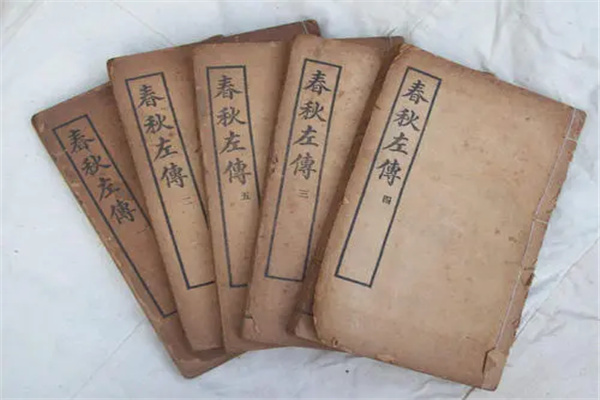 春秋左傳
春秋左傳二
春秋左傳五
春秋左傳三
春秋左傳四